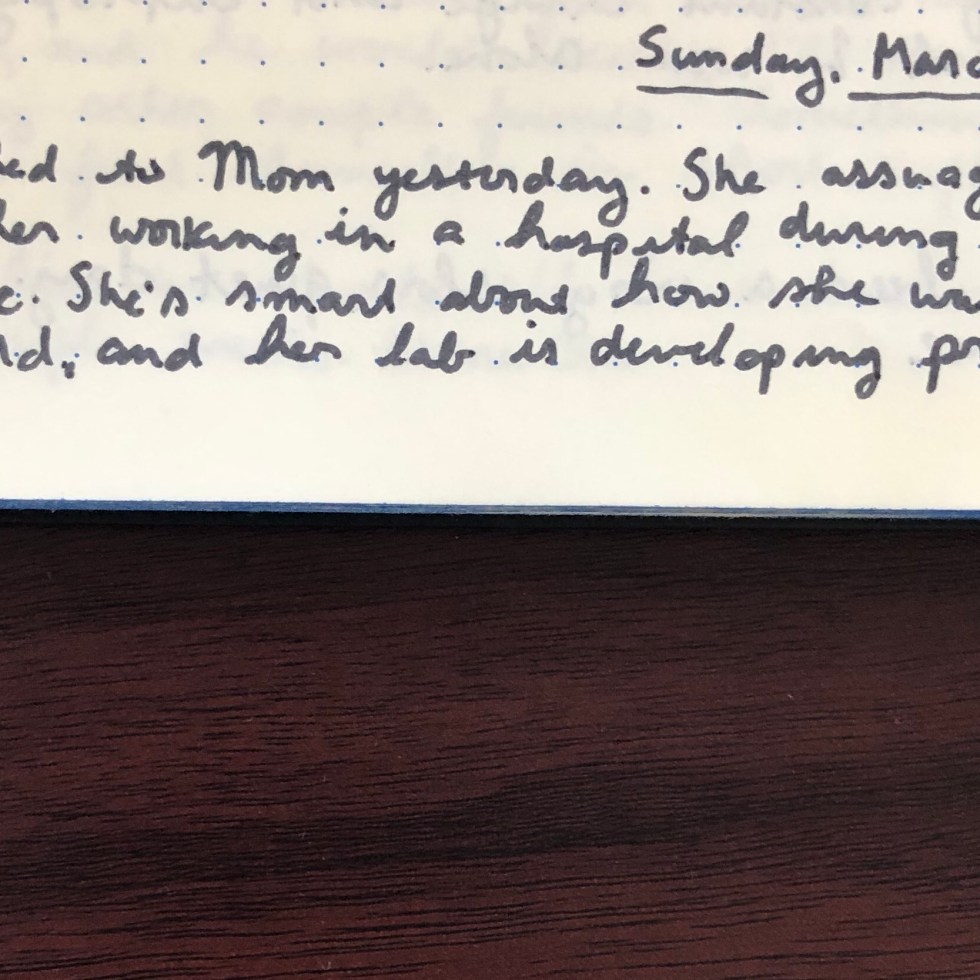 Sunday, Marc
ed to Mom yesterday. She assuag
her working in a hospital during
e. She's smart about how she wa
rd, and her lab is developing pr